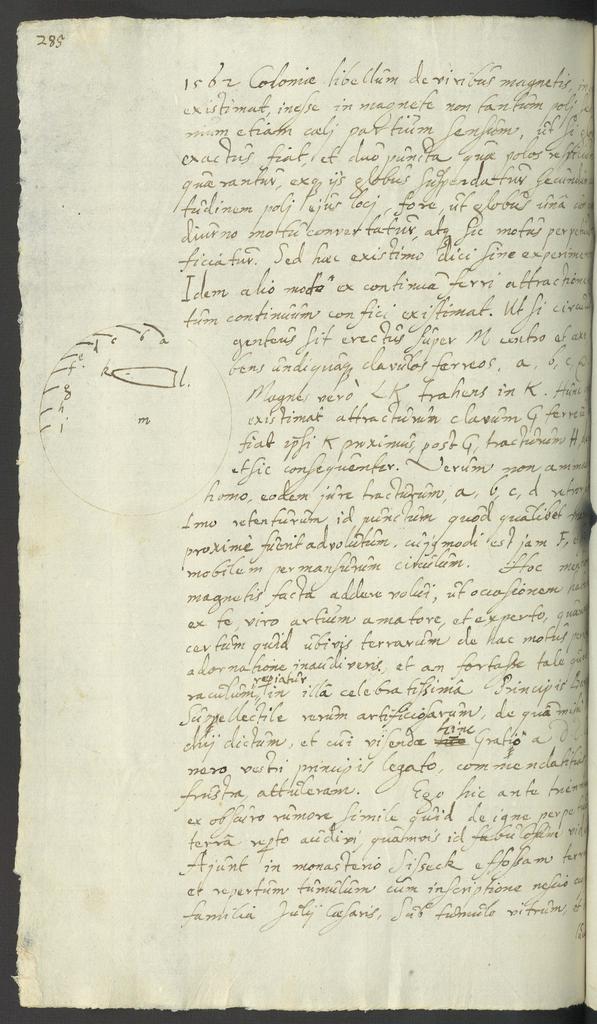 285
1562 Coloniæ libellum de viribus magnetis, in
existimat, inesse in magnete non tantum polj, se
mum etiam cælj partium sensum, ut si glo
exactus fiat, et duo puncta quæ polos respiciun
quærantur, exq; ijs globus suspendatur secundum
tudinem polj ejus loci, fore, ut globus unà cum
diurno mottu convertatur, atq; sic motus perpetuus
ficiatur. Sed hæc existimo dici sine experimen
Idem alio modo ex continua ferri attractione
tum continuum confici existimat. Ut si circulus
genteus sit erectus super M centro et
bens undiquaq; clavulos ferreos, a, b, c, d
Magnes verò LK trahens in K. Hunc
existimat attracturum clavum G ferreu
fiat ipsi K proximus, post G, tracturum H
et sic consequenter. Verum non anim
homo, eodem jure tracturum, a, b, c, d retror
Imo retenturum id punctum quod qualibet
proximè fuerit advolutum, cujusmodi est jam F,
mobilem permansurum circulum. Hoc
magnetis facta addere volui, ut occasionem
ex te, viro artium amatore, et experto, quær
certum quid ubivis terrarum de hac motus per
adornatione inaudiveris, et an fortasse tale
raculum, repiatur in illâ celebratissimâ Principis
Suppellectile rerum artificiosarum, de quâ
chij dictum, et cui visendæ hinc Gratio a
nero vestri principis legato, commendatitias
frustra, attuleram. Ego hic ante trien
ex obscuro rumore simile quid de igne perpe
terrâ repto audivi, quamvis id fabulosum vid
Ajunt in monasterio Sisseck effossam terra
et repertum tumulum cum inscriptione nescio cu
familiâ Julij Cæsaris, Sub tumulo vitrum, et
a
b
c
d
e
f
g
h
i
k
l
m